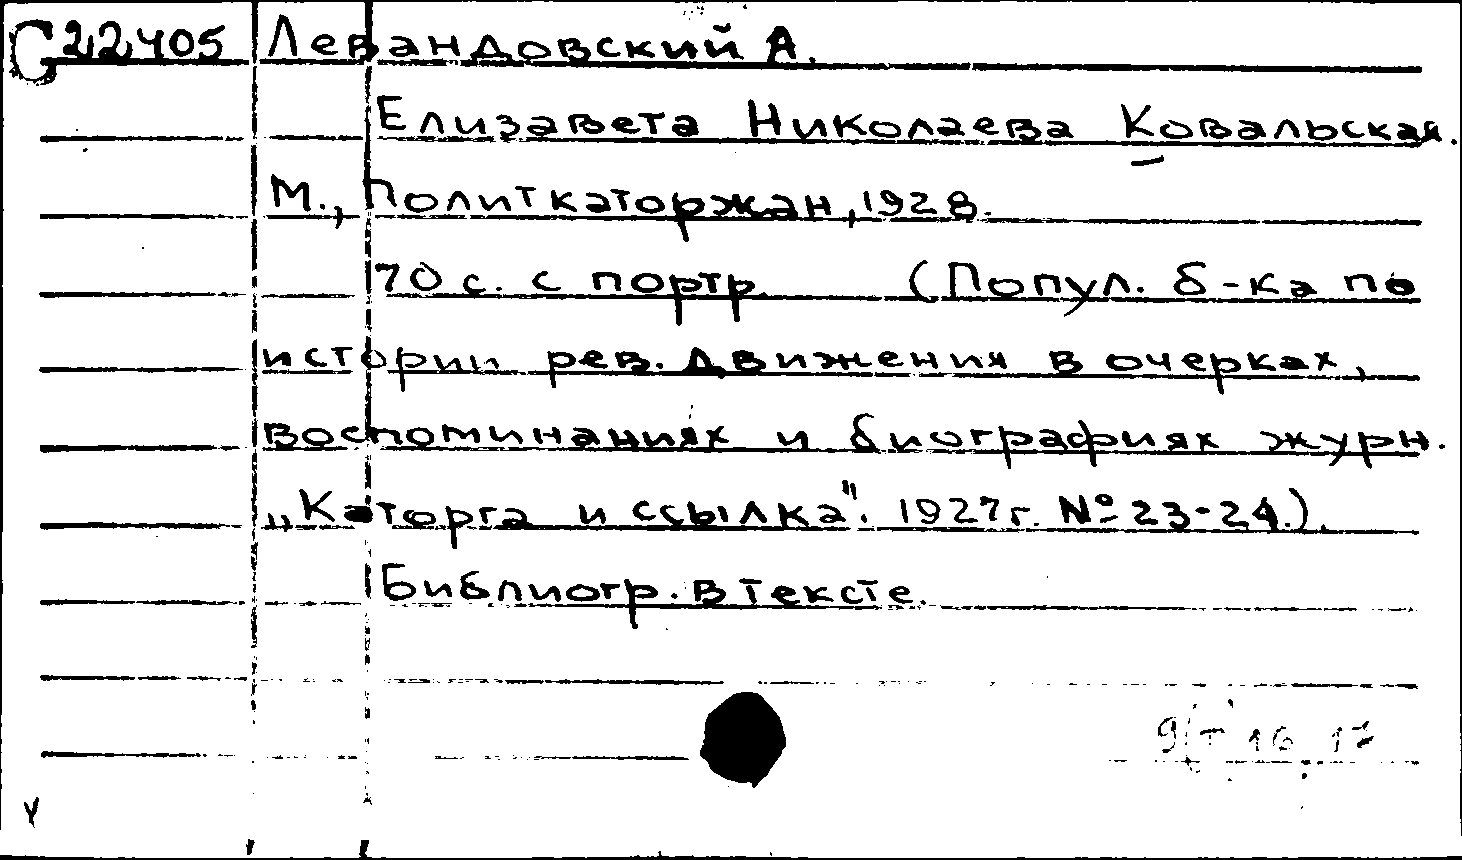 G22405 Левандовский А.
Елизавета Николаева Ковальская.
М., Политкаторжан, 1928.
70 с. с портр. (Попул. б-ка по
истории рев. движения в очерках,
воспоминаниях и биографиях журн.
„Каторга и ссылка". 1927г. № 23-24.).
Библиогр. в тексте.